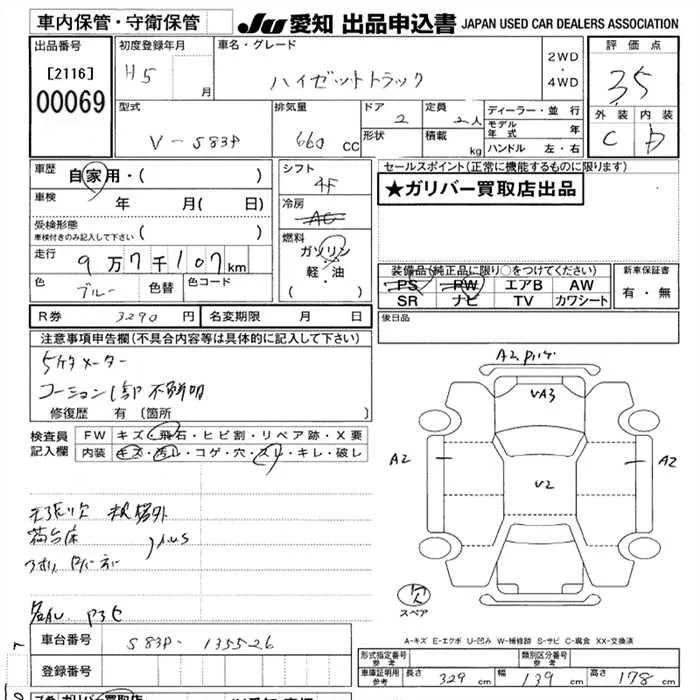 車内保管・守衛保管
JU 愛知 出品申込書 JAPAN USED CAR DEALERS ASSOCIATION
出品番号
[2116]
00069
初度登録年月
H5 月
車名・グレード
ハイゼットトラック
2WD
・
4WD
評価点
3.5
外装 内装
C D
型式
V-S83P
排気量
660 CC
ドア
2
形状
定員
2人
積載
kg
ディーラー・並行
モデル年式 年
ハンドル 左・右
車歴
自家用・( )
車検
年 月( 日)
受検形態
車検付きのみ記入して下さい ( )
走行
9万7千107km
色
ブルー
色替
色コード
シフト
4F
冷房
AC
燃料
ガソリン
軽・油
( )
セールスポイント(正常に機能するものに限ります)
★ガリバー買取店出品
装備品(純正品に限り○をつけてください)
PS PW エアB AW
SR ナビ TV カワシート
新車保証書
有・無
後日品
R券 3290 円
名変期限 月 日
注意事項申告欄(不具合内容等は具体的に記入して下さい)
5ケタメーター
コーション1部不鮮明
修復歴 有(箇所 )
検査員記入欄
FW キズ・飛石・ヒビ割・リペア跡・X要
内装 キズ・汚レ・コゲ・穴・スレ・キレ・破レ
A2
VA3
A2
A2
V2
スペア
A-キズ E-エクボ U-凹み W-補修跡 S-サビ C-腐食 XX-交換済
車台番号
S83P-135526
登録番号
形式指定番号 参考
類別区分番号 参考
車庫証明用参考
長さ 329 cm
幅 139 cm
高さ 178 cm
ガリバー買取店